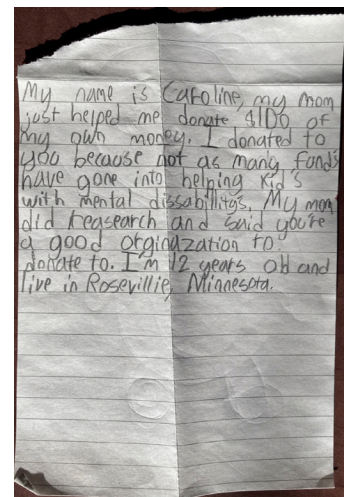 My name is Caroline, my mom
just helped me donate $100 of
my own money. I donated to
you because not as many funds
have gone into helping kid's
with mental dissabillitys. My mom
did reasearch and said you're
a good orginazation to
donate to. I'm 12 years old and
live in Rosevillie, Minnesota.